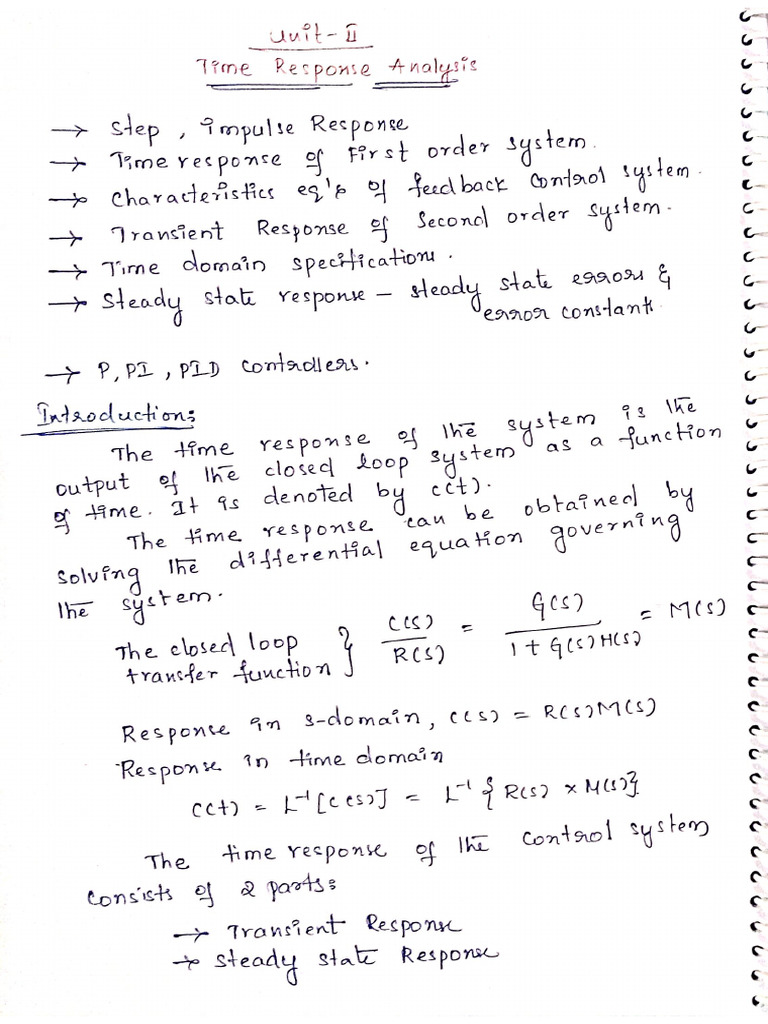 Unit-II
Time Response Analysis
→ Step, impulse Response
→ Time response of First order system.
→ Characteristics eq's of feedback control system.
→ Transient Response of Second order system.
→ Time domain specifications.
→ Steady state response – steady state errors &
error constants.
→ P, PI, PID controllers.
Introduction:
The time response of the system is the
output of the closed loop system as a function
of time. It is denoted by c(t).
The time response can be obtained by
solving the differential equation governing
the system.
The closed loop transfer function } C(s)/R(s) = G(s)/(1 + G(s)H(s)) = M(s)
Response in s-domain, C(s) = R(s)M(s)
Response in time domain
C(t) = L⁻¹[C(s)] = L⁻¹{R(s) × M(s)}
The time response of the control system
consists of 2 parts:
→ Transient Response
→ Steady state Response